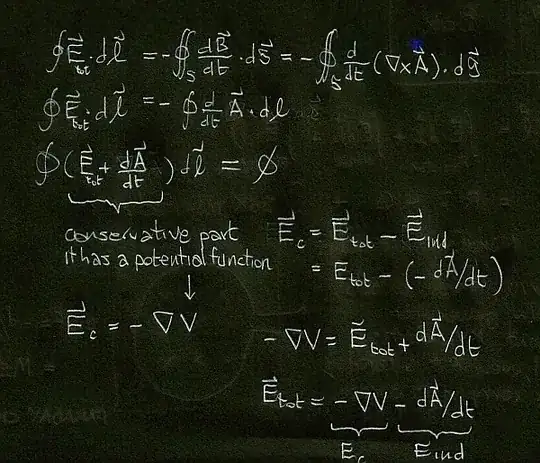 ∮ E⃗tot · dl⃗ = - ∯S dB⃗/dt · ds⃗ = - ∯S d/dt (∇×A⃗) · ds⃗
∮ E⃗tot · dl⃗ = - ∮ d/dt A⃗ · dl
∮ (E⃗tot + dA⃗/dt) dl⃗ = ∅
conservative part
it has a potential function
↓
E⃗c = - ∇V
E⃗c = E⃗tot - E⃗ind
= Etot - (- dA⃗/dt)
- ∇V = E⃗tot + dA⃗/dt
E⃗tot = - ∇V - dA⃗/dt
Ec Eind